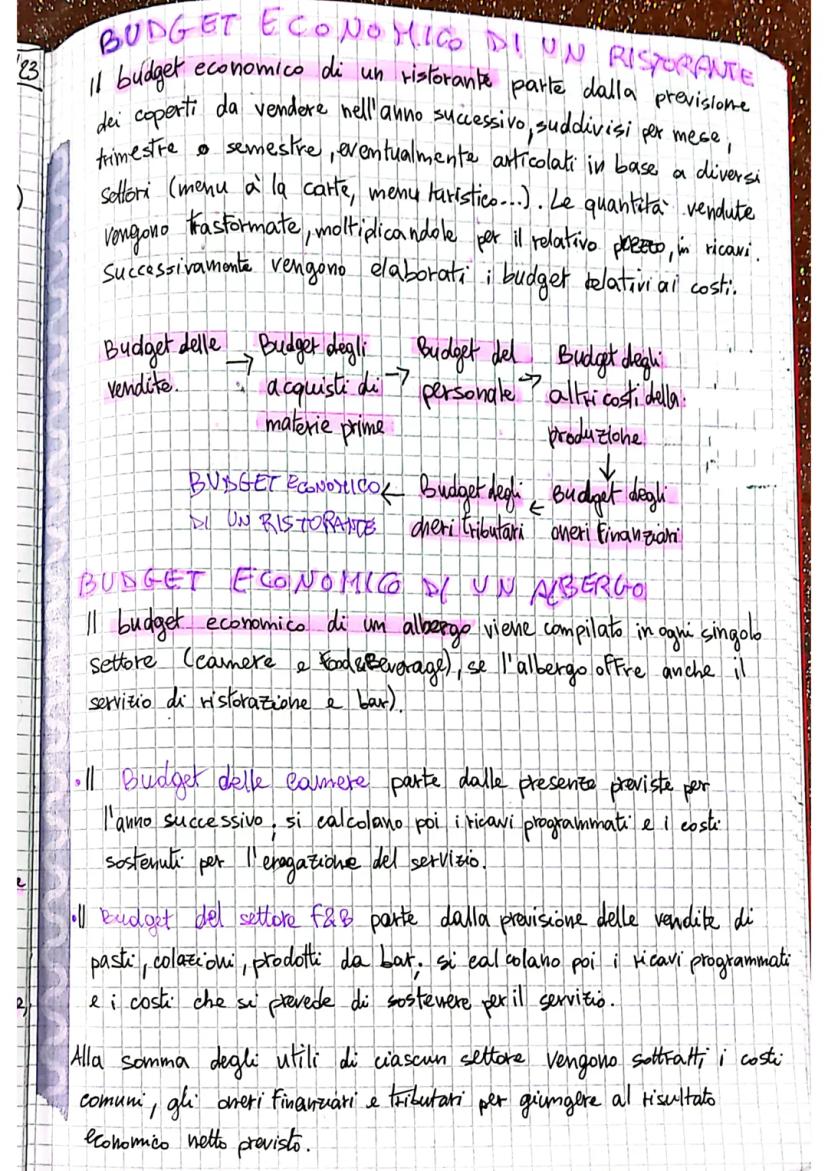 BUDGET ECONOMICO DI UN RISTORANTE
'23
Il budget economico di un ristorante parte dalla previsione
dei coperti da vendere nell'anno successivo, suddivisi per mese,
trimestre o semestre, eventualmente articolati in base a diversi
settori (menu à la carte, menu turistico...). Le quantità vendute
vengono trasformate, moltiplicandole per il relativo prezzo, in ricavi.
Successivamente vengono elaborati i budget relativi ai costi.
Budget delle → Budget degli → Budget del → Budget degli
vendite. acquisti di personale altri costi della
materie prime produzione
↓
BUDGET ECONOMICO ← Budget degli ← Budget degli
DI UN RISTORANTE oneri tributari oneri finanziari
BUDGET ECONOMICO DI UN ALBERGO
Il budget economico di un albergo viene compilato in ogni singolo
settore (camere e Food&Beverage), se l'albergo offre anche il
servizio di ristorazione e bar).
• Il Budget delle camere parte dalle presenze previste per
l'anno successivo; si calcolano poi i ricavi programmati e i costi
sostenuti per l'erogazione del servizio.
• Il Budget del settore F&B parte dalla previsione delle vendite di
pasti, colazioni, prodotti da bar; si calcolano poi i ricavi programmati
e i costi che si prevede di sostenere per il servizio.
Alla somma degli utili di ciascun settore vengono sottratti i costi
comuni, gli oneri finanziari e tributari per giungere al risultato
economico netto previsto.